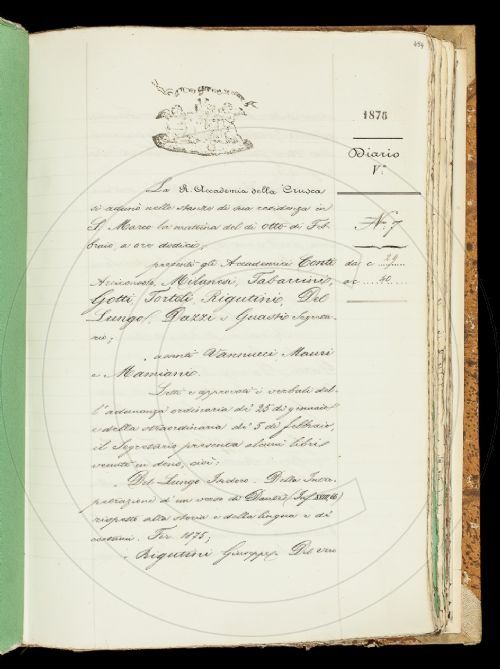 454
1876
Diario
V.º
N. 7
da c. 29
a c. 40
La R. Accademia della Crusca
si adunò nelle stanze di sua residenza in
S. Marco la mattina del dì otto di Feb-
braio, a ore dodici,
presenti gli Accademici Conti
Arciconsolo, Milanesi, Tabarrini,
Gotti, Tortoli, Rigutini, Del
Lungo, Dazzi e Guasti Segreta-
rio;
assenti Vannucci Mauri
e Mamiani.
Letti e approvati i verbali del-
l'adunanza ordinaria de' 25 di gennaio
e della straordinaria de' 5 di febbraio,
il Segretario presenta alcuni libri
venuti in dono, cioè;
Del Lungo Isidoro. Della Inter-
petrazione d'un verso di Dante (Inf. XVIII, 66)
rispetto alla storia e della lingua e dei
costumi. Fir. 1875;
Rigutini Giuseppe. Del vero